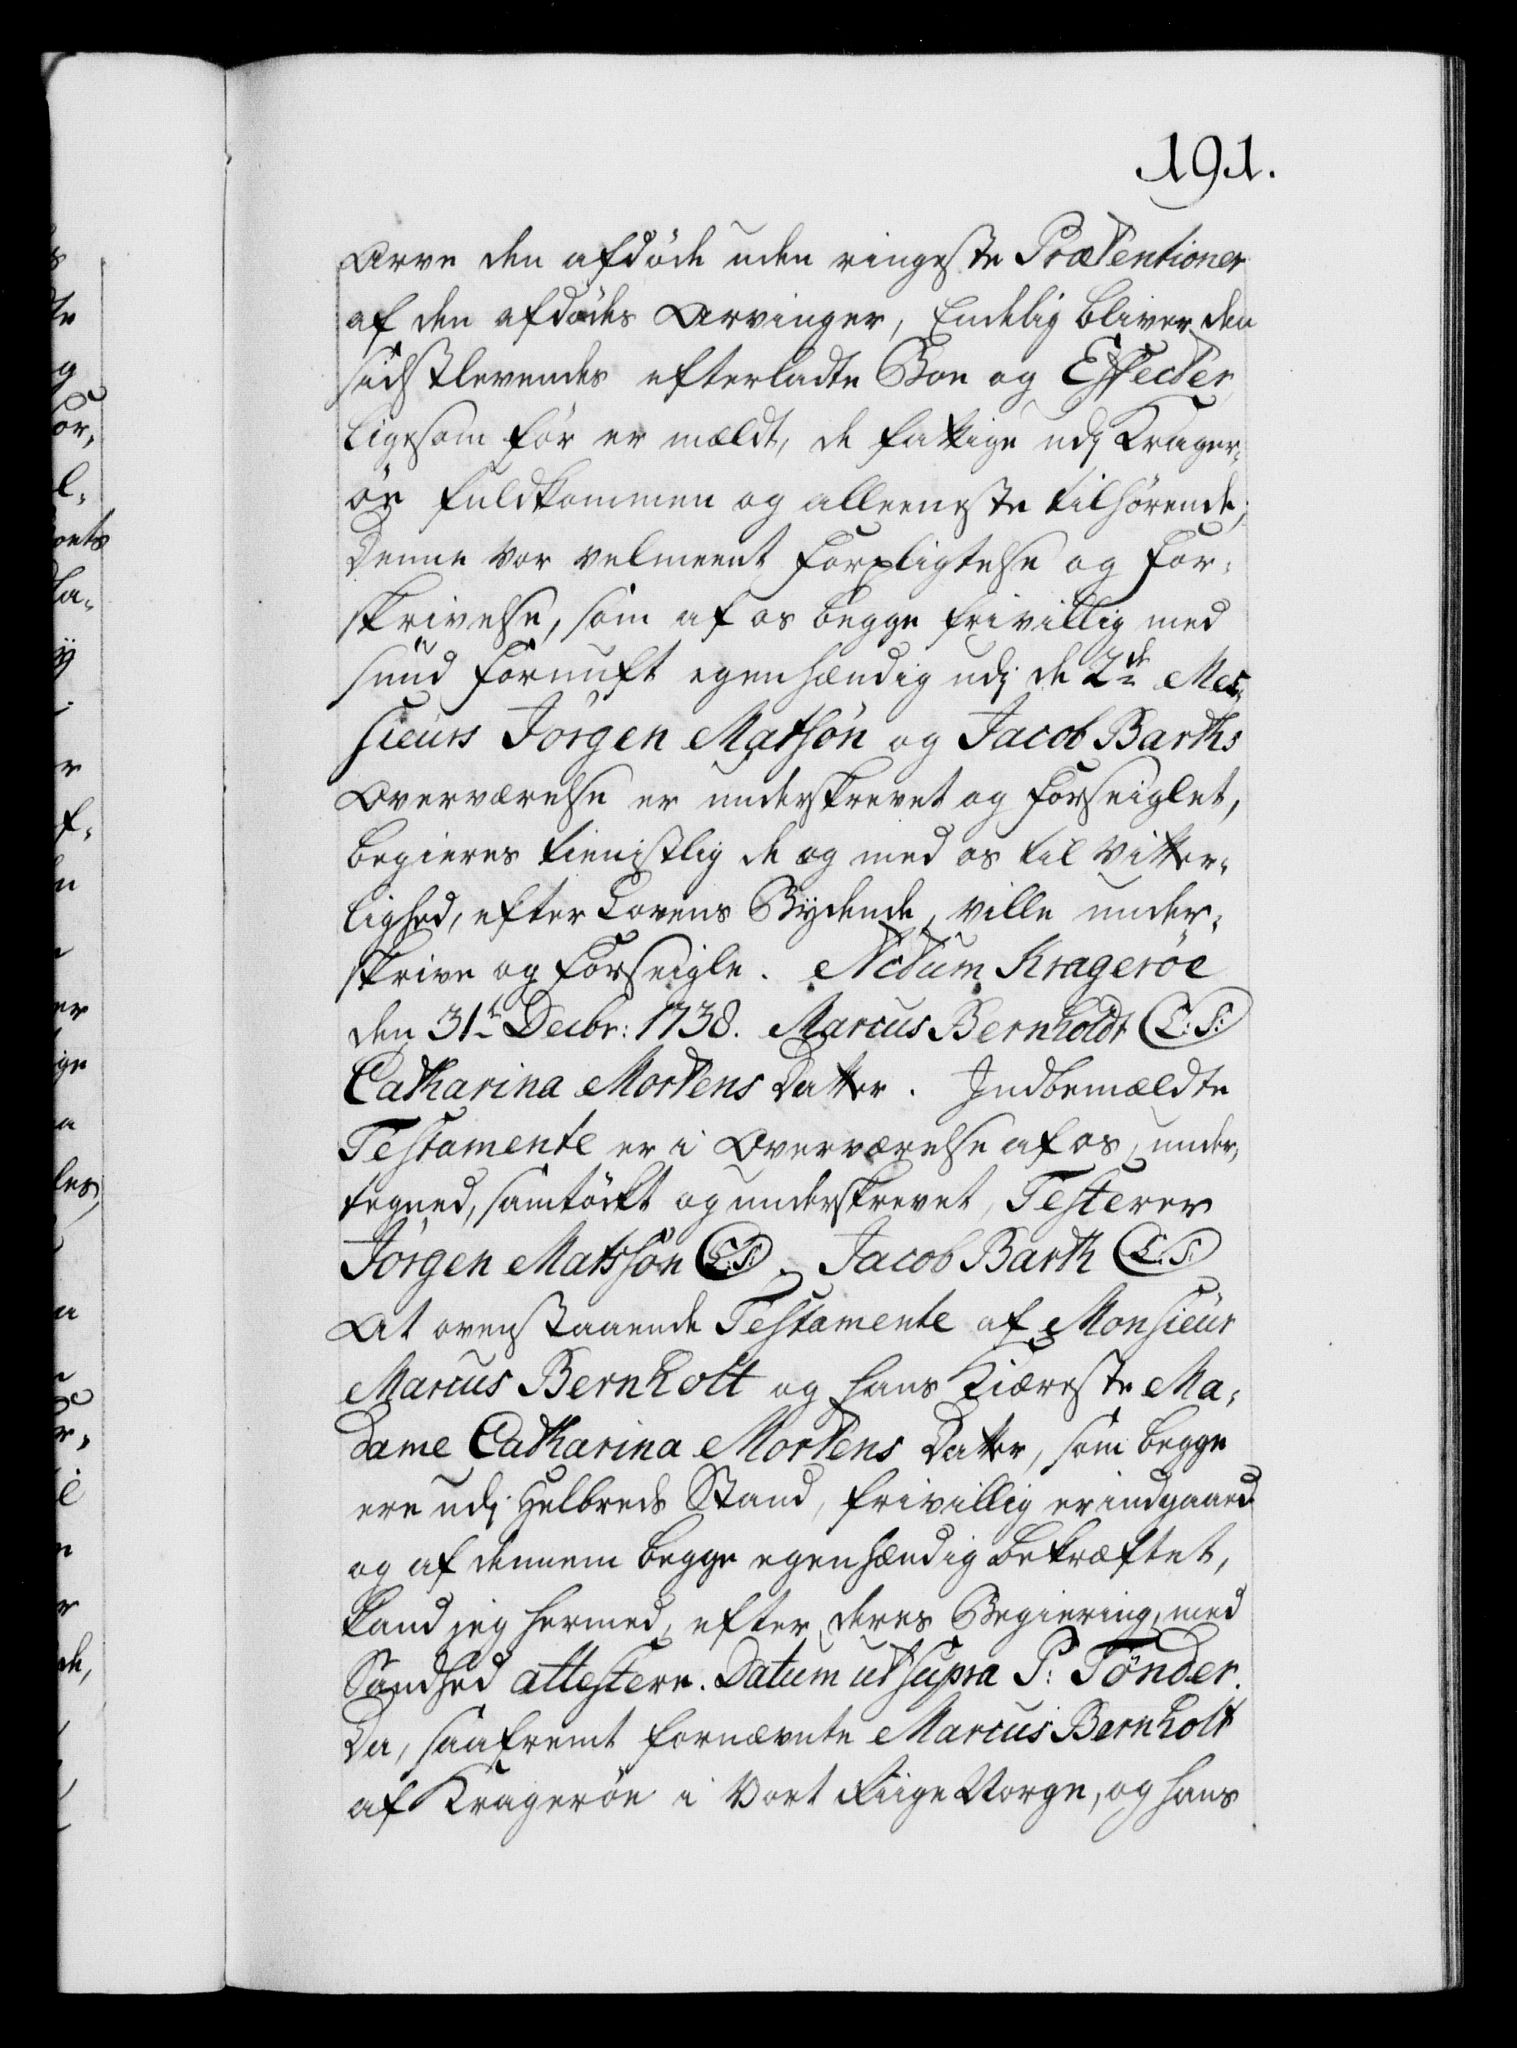 191.
Arve den afdöde uden ringeste Prætentioner
af den afdödes Arvinger, Endelig bliver den
sidstlevendes efterladte Boe og Effecter,
ligesom för er meldt, de fattige udj Krager-
öe fuldkommen og alleeneste tilhörende;
Denne vor velmeent Forpligtelse og For-
skrivelse, som af os begge frivillig med
sund Fornuft egenhændig udj de 2de Mes-
sieurs Jörgen Matsön og Jacob Barths
Overværelse er underskrevet og forseiglet,
begieres tienistlig de og med os til Vitter-
lighed, efter Lovens Bydende, ville under-
skrive og forseigle. Actum Krageröe
den 31te Decbr: 1738. Marcus Bernholdt (L:S:)
Catharina Mortens Datter. Indbemældte
Testamente er i Overværelse af os, under-
tegned, samtöckt og underskrevet, Testerer
Jörgen Matssön (L:S:). Jacob Barth (L:S:)
At ovenstaaende Testamente af Monsieur
Marcus Bernholt og hans Kiæreste Ma-
dame Catharina Mortens Datter, som begge
ere udj Helbreds Stand, frivillig er indgaaed
og af dennem begge egenhændig bekræftet,
kand jeg hermed, efter deres Begiering, med
Sandhed attestere. Datum ut supra P: Tönder.
Da, saafremt fornævnte Marcus Bernholt
af Krageröe i Vort Riige Norge, og hans